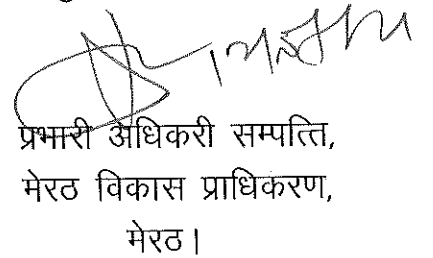 प्रभारी अधिकरी सम्पत्ति,
मेरठ विकास प्राधिकरण,
मेरठ।